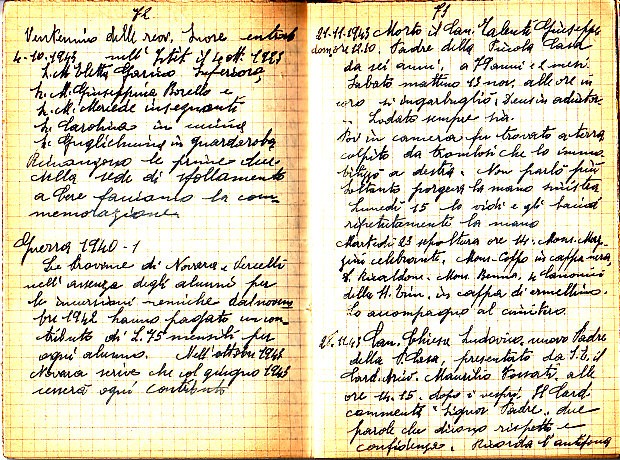 72
Ventennio delle rev. Suore entrate
4-10-1943 nell'Istit. il 4 ott. 1923
Superiora,
Sr. M. Giuseppina Borello e
insegnanti
Sr. Carolina in cucina
Sr. Guglielmina in guardaroba
Rimangono le prime due
nella sede di sfollamento
a Cere facciamo la com-
memorazione.
Guerra 1940-1
Le provincie di Novara e Vercelli
nell'assenza degli alunni per
le incursioni nemiche dal novem
bre 1942 hanno pagato un con-
tributo di L. 75 mensili per
ogni alunno. Nell'ottobre 1943
Novara scrive che col giugno 1943
cesserà ogni contributo
71
21-11-1943 Morto il Can. Talenti Giuseppe
dom. ore 12.10. Padre della Piccola Casa
da sei anni, a 79 anni e 2 mesi
Sabato mattino 13 nov. alle ore in
coro si ingarbugliò: Deus in adiutor-
Lodato sempre sia.
Poi in camera fu trovato a terra
colpito da trombosi che lo immo
bilizzò a destra. Non parlò più
soltanto porgeva la mano sinistra
Lunedì 15 lo vidi e gli baciai
ripetutamente la mano
Martedì 23 sepoltura ore 14. Mons.
celebrante, Mons. Coppo in cappa nera
Mons. Benna, e Canonici
della SS. Trin. in cappa di ermellino.
Lo accompagno al cimitero.
11.43 Can. Chiesa Ludovico, nuovo Padre
della P. Casa, presentato da S. E. il
Card. Arciv. Maurilio Fossati, alle
ore 14.15. dopo i vespri. Il Card
commentò "Signor Padre" due
parole che dicono rispetto e
confidenza. Ricorda l'antifona